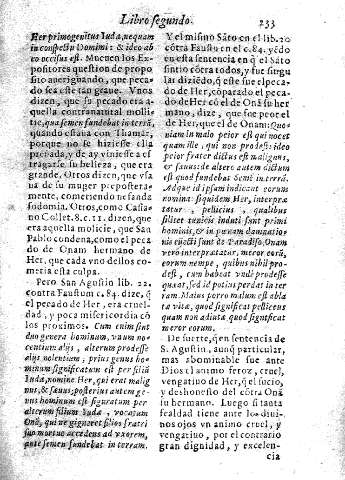 Libro segundo.
233
Her primogenitus Iuda, nequam
in conspectu Domini: & ideo ab eo
occisus est. Mueuen los Ex-
positores question de propo
sito aueriguando, que peca
do sea este tan graue. Vnos
dizen, que su pecado era a-
quella contranatural mollit
tie, qua semen fundebat in terrã,
quando estaua con Thamar,
porque no se hiziesse ella
preñada, y de ay viniesse a es
tragarse su belleza, que era
grande. Otros dizen, que vsa
ua de su muger prepostera-
mente, cometiendo nefanda
sodomia. Otros, como Casia-
no Collet. 8. c. 11. dizen, que
era aquella molicie, que San
Pablo condena, como el peca
do de Onam hermano de
Her, que cada vno dellos co-
meria esta culpa.
Pero San Agustin lib. 22.
contra Faustum c. 84. dize, q̃
el pecado de Her, era cruel-
dad, y poca misericordia cõ
los proximos. Cum enim sint
duo genera hominum, vnum no-
centium alijs, alterum prodesse
alijs nolentium, prius genus ho-
minum significatum est per filiũ
Iuda, nomine Her, qui erat malig
nus, & sæuus: posterius autem ge-
nus hominum est figuratum per
alterum filium Iuda, vocatum
Onã, qui ne gigneret filios fratri
suo mortuo accedens ad vxorem,
ante semen fundebat in terram.
Y el mismo Sãto en el lib. 20
cõtra Faust. en el c. 84. yẽdo
en esta sentencia en q̃ el Sãto
sintio cõtra todos, y fue singu
lar diziẽdo, q̃ este fue el peca-
do de Her, cõparado el peca-
do de Her cõ el de Onã su her
mano, dize, que fue peor el
de Her, que el de Onam: Quo-
niam in malo peior est qui nocet
quam ille, qui non prodest: ideo
prior frater dictus est malignus,
& sæuus: de altero autem dictum
est quod fundebat semen in terrã.
Adque id ipsum indicant eorum
nomina: siquidem Her, interpræ
tatur, pellicius, qualibus
scilicet tunicis induti sunt primi
hominis, & in pœnam damnatio-
nis eiecti sunt de Paradiso. Onam
verò interpræatur, meror eorũ,
eorum nempe, quibus nihil pro-
dest, cum habeat vndè prodesse
queat, sed id potius perdat in ter
ram. Maius porro malum est abla
ta vita, quod significat pelliceus
quam non adiuta quod significat
meror eorum.
De suerte, q̃ en sentencia de
S. Agustin, aunq̃ particular,
mas abominable fue ante
Dios el animo feroz, cruel,
vengatiuo de Her, q̃ el sucio,
y deshonesto del cõtra Onã
su hermano. Luego si tanta
fealdad tiene ante los diui-
nos ojos vn animo cruel, y
vengatino, por el contrario
gran dignidad, y excelen-
cia